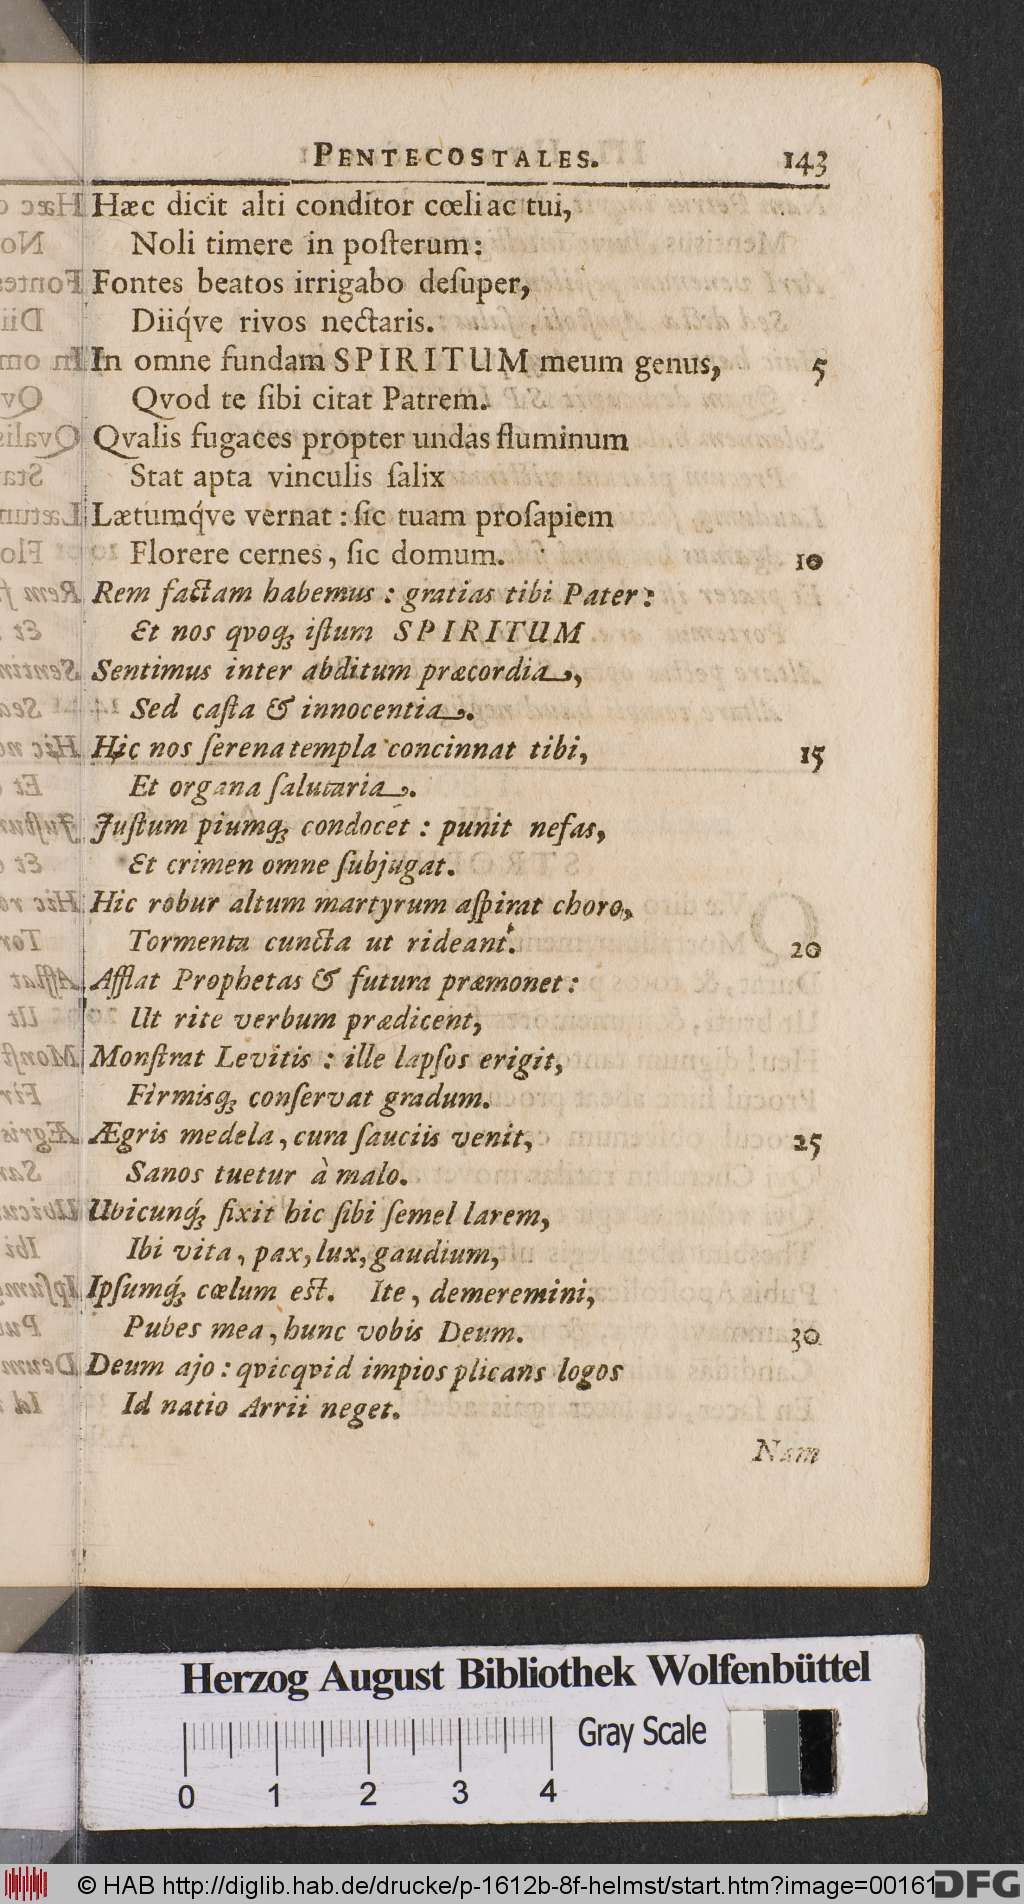 PENTECOSTALES. 143
Hæc dicit alti conditor cœli ac tui,
Noli timere in poſterum:
Fontes beatos irrigabo deſuper,
Diiq́ve rivos nectaris.
In omne fundam SPIRITUM meum genus, 5
Qvod te ſibi citat Patrem.
Qvalis fugaces propter undas fluminum
Stat apta vinculis ſalix
Lætumq́ve vernat: ſic tuam proſapiem
Florere cernes, ſic domum. 10
Rem factam habemus: gratias tibi Pater:
Et nos qvoqꝫ iſtum SPIRITUM
Sentimus inter abditum præcordia,
Sed caſta & innocentia.
Hic nos ſerena templa concinnat tibi, 15
Et organa ſalutaria.
Juſtum piumqꝫ condocet: punit nefas,
Et crimen omne ſubjugat.
Hic robur altum martyrum aſpirat choro,
Tormenta cuncta ut rideant. 20
Afflat Prophetas & futura præmonet:
Ut rite verbum prædicent,
Monſtrat Levitis: ille lapſos erigit,
Firmisqꝫ conſervat gradum.
Ægris medela, cura ſauciis venit, 25
Sanos tuetur à malo.
Ubicunq́ꝫ fixit hic ſibi ſemel larem,
Ibi vita, pax, lux, gaudium,
Ipſumq́ꝫ cœlum eſt. Ite, demeremini,
Pubes mea, hunc vobis Deum. 30
Deum ajo: qvicqvid impios plicans logos
Id natio Arrii neget.
Nam
Herzog August Bibliothek Wolfenbüttel
Gray Scale
0 1 2 3 4
© HAB http://diglib.hab.de/drucke/p-1612b-8f-helmst/start.htm?image=00161
DFG